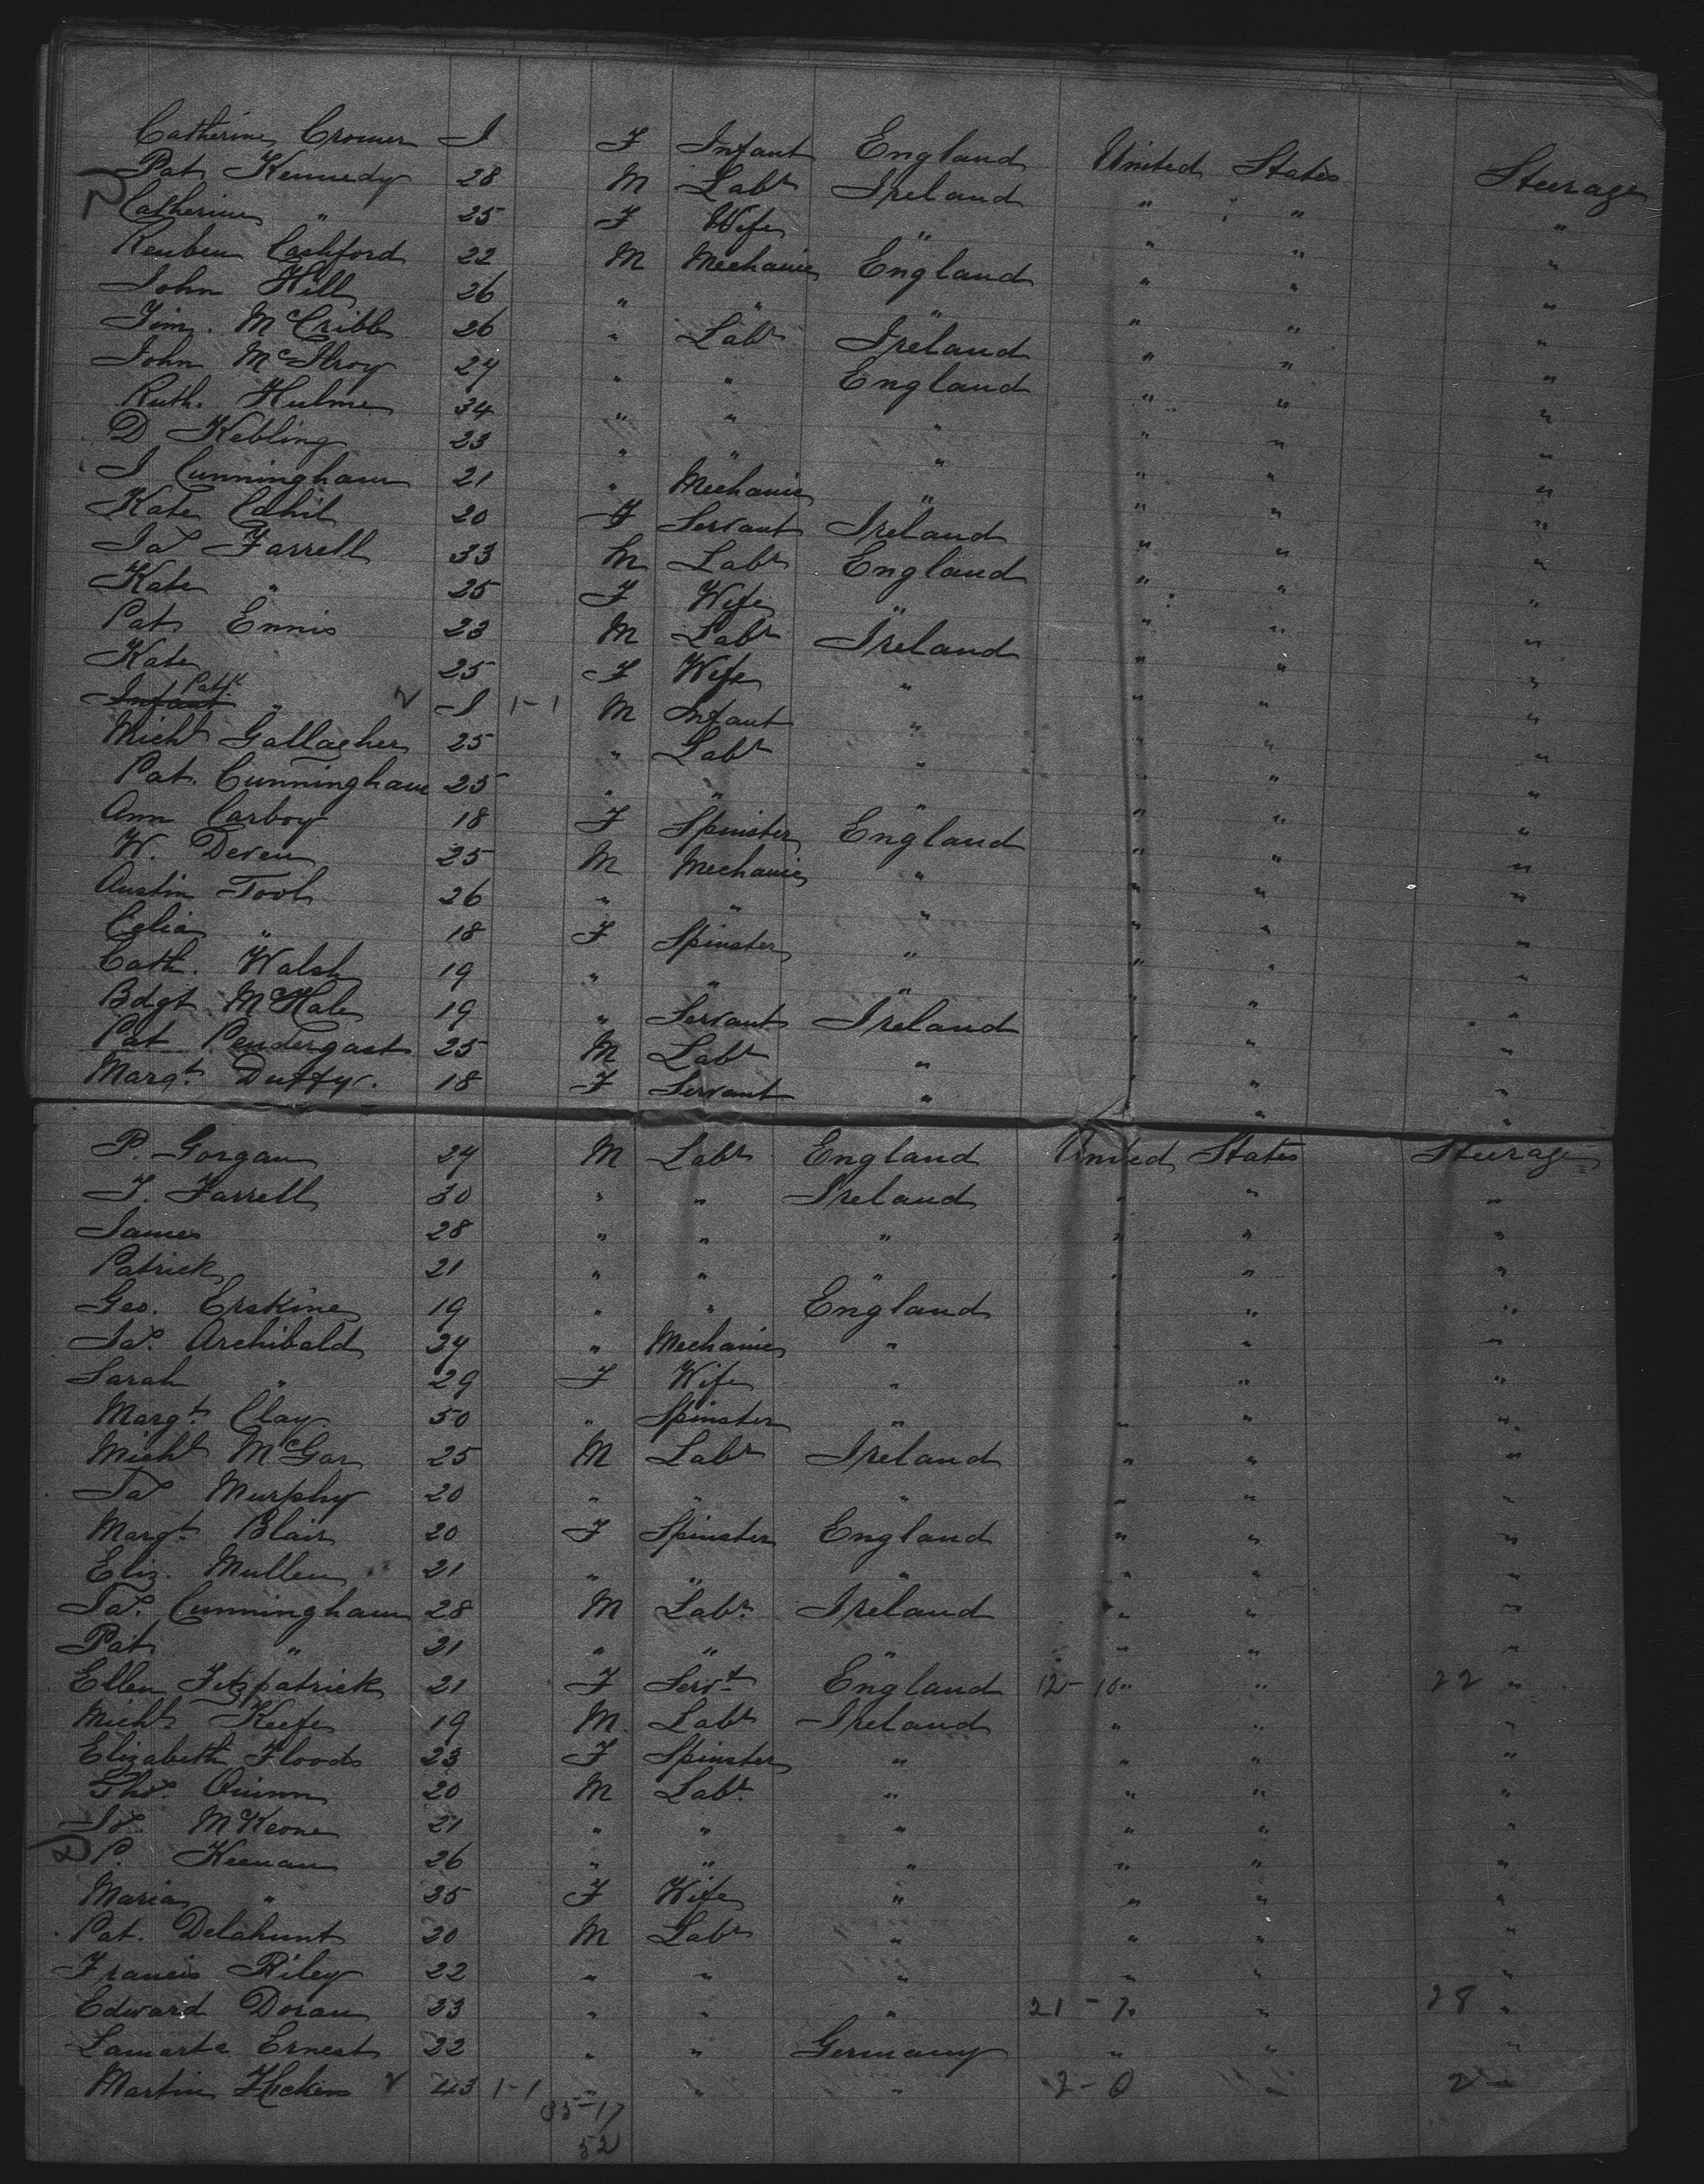 Catherine Cromer I F Infant England United States Steerage
Pat Kennedy 28 M Labr Ireland " " "
Catherine " 25 F Wife " " " "
Reuben Cashford 22 M Mechanic England " " "
John Hill 26 " " " " " "
Jim. McCribb 26 " Labr Ireland " " "
John McIlroy 24 " " England " " "
Ruth. Hulme 34 " " " " " "
D Kebling 23 " " " " " "
J Cunningham 21 " Mechanic " " " "
Kate Cahil 20 F Servant Ireland " " "
Jas Farrell 33 M Labr England " " "
Kate " 25 F Wife " " " "
Pat Ennis 23 M Labr Ireland " " "
Kate 25 F Wife " " " "
Patk
Infant " I 1-1 M Infant " " " "
Michl Gallagher 25 " Labr " " " "
Pat. Cunningham 25 " " " " " "
Ann Carboy 18 F Spinster England " " "
W. Deven 25 M Mechanic " " " "
Austin Tool 26 " " " " " "
Celia " 18 F Spinster " " " "
Cath. Walsh 19 " " " " " "
Bdgt McHale 19 " Servant Ireland " " "
Pat Pendergast 25 M Labr " " " "
Margt. Duffy. 18 F Servant " " " "
P. Gorgan 24 M Labr England United States Steerage
J. Farrell 30 " " Ireland " " "
James 28 " " " " " "
Patrick 21 " " " " " "
Geo. Erskine 19 " " England " " "
Jas. Archibald 34 " Mechanic " " " "
Sarah " 29 F Wife " " "
Margt. Clay 50 " Spinster " " " "
Michl McGar 25 M Labr Ireland " " "
Jas Murphy 20 " " " " " "
Margt Blair 20 F Spinster England " " "
Eliz. Mullen 21 " " " " " "
Jas. Cunningham 28 M Labr. Ireland " " "
Pat " 21 " " " " " "
Ellen Fitzpatrick 21 F Servt England 12-10 " " 22 "
Michl Keefe 19 M Labr Ireland " " "
Elizabeth Floods 23 F Spinster " " " "
Thos. Quinn 20 M Labr. " " " "
Js. McKeone 21 " " " " " "
P. Keenan 26 " " " " " "
Maria " 25 F Wife " " " "
Pat. Delahunt 20 M Labr " " " "
Francis Riley 22 " " " " " "
Edward Doran 23 " " " 21-7 " " 28 "
Lamarta Ernest 22 " " Germany " " "
Martin Hickin 43 1-1 " " " 2-0 " 2 "
85-17
52